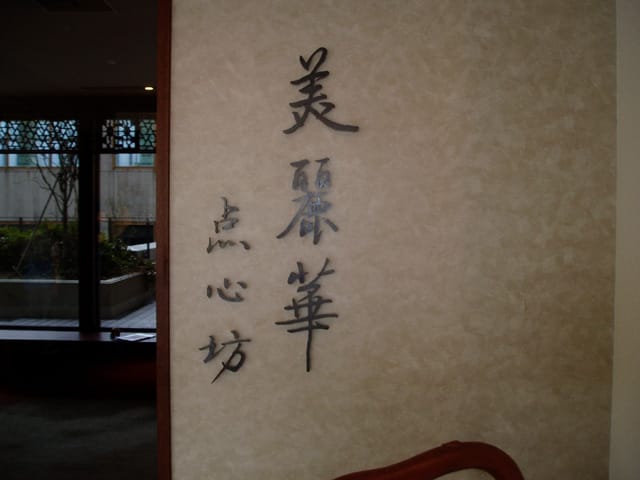 美麗華
点心坊